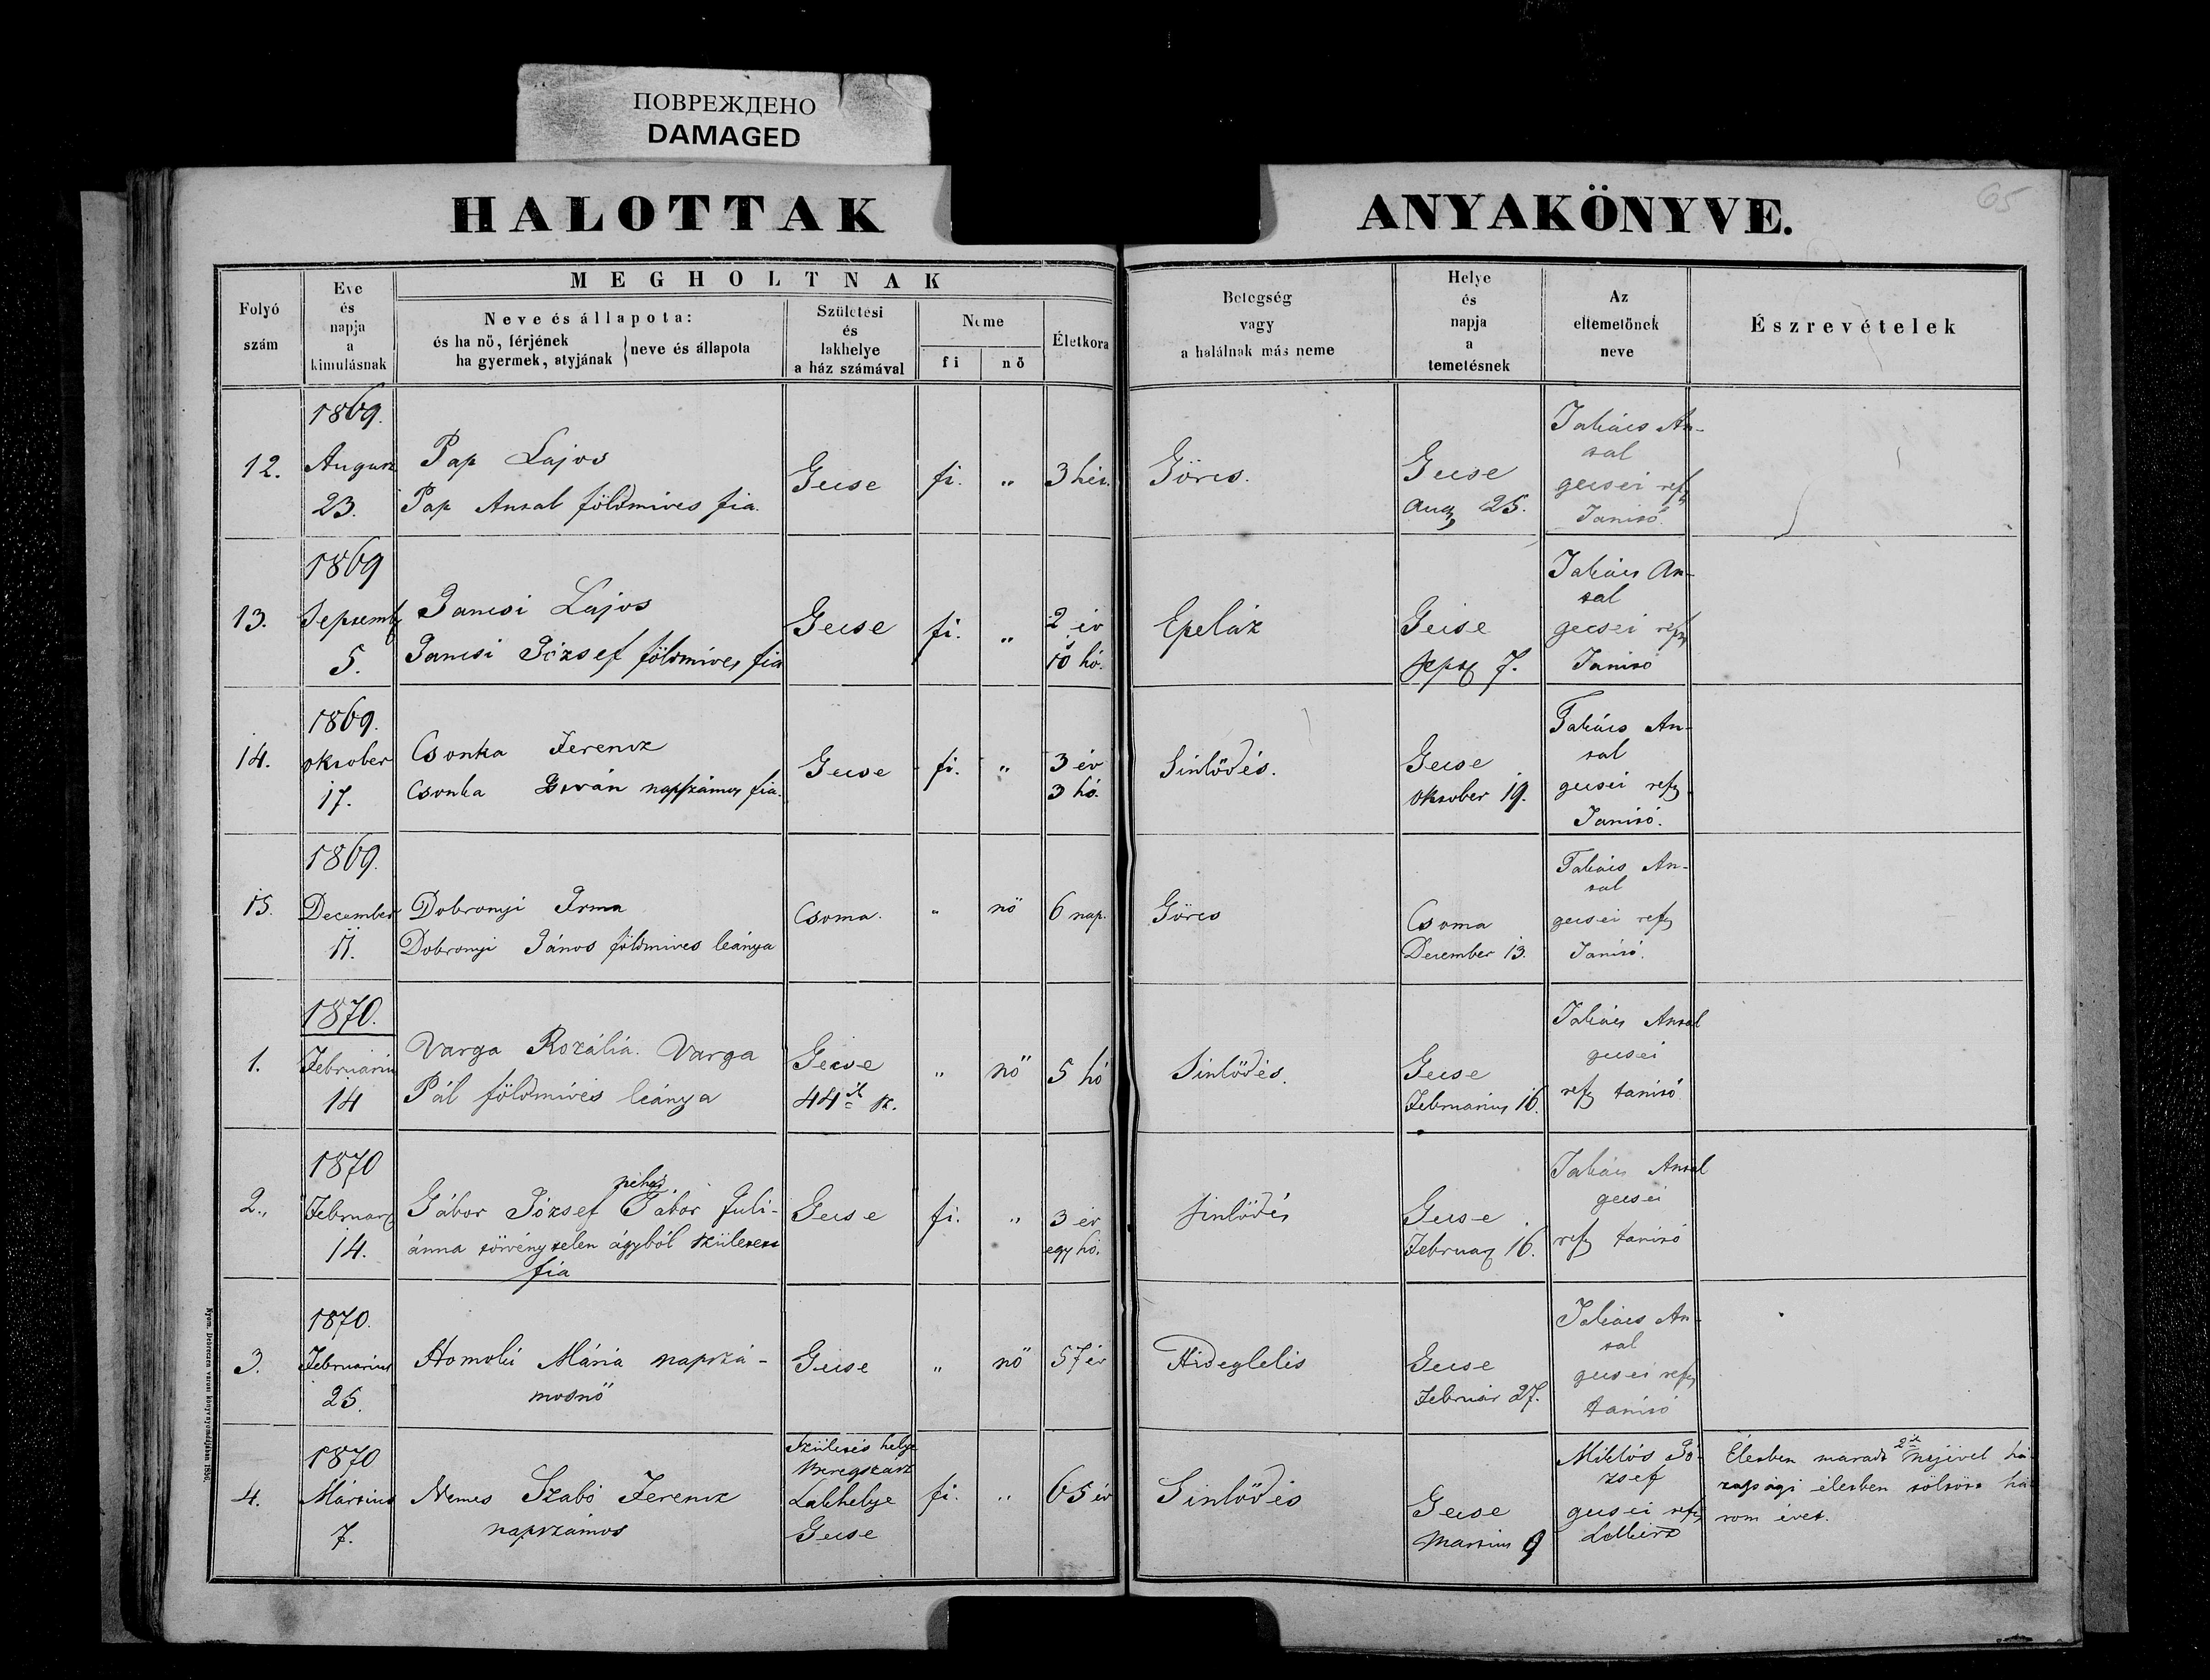 ПОВРЕЖДЕНО
DAMAGED
65
HALOTTAK ANYAKÖNYVE.
Folyó
szám
Eve
és
napja
a
kimulásnak
MEGHOLTNAK
Neve és állapota:
és ha nö, férjének
ha gyermek, atyjának } neve és állapota
Születési
és
lakhelye
a ház számával
Neme
fi
nő
Életkora
Betegség
vagy
a halálnak más neme
Helye
és
napja
a
temetésnek
Az
eltemetőnek
neve
Észrevételek
12.
1869.
August
23.
Pap Lajos
Pap Antal földmives fia.
Gecse
fi.
"
3 hét.
Görcs.
Gecse
Aug 25.
Takács An-
tal
gecsei ref
Tanitó.
13.
1869
Septemb
5.
Jancsi Lajos
Jancsi József földmives fia
Gecse
fi.
"
2 év
10 hó.
Epeláz
Gecse
Sept 7.
Takács An-
tal
gecsei ref
Tanitó
14.
1869.
október
17.
Csonka Ferencz
Csonka István napszámos fia.
Gecse
fi.
"
3 év
3 hó.
Sinlődés.
Gecse
október 19.
Takács An-
tal
gecsei ref
Tanitó.
15.
1869.
December
11.
Dobronyi Irma
Dobronyi János földmives leánya
Csoma.
"
nő
6 nap.
Görcs
Csoma
December 13.
Takács An-
tal
gecsei ref
Tanító.
1.
1870.
Február
14
Varga Rozália. Varga
Pál földmívés leánya
Gecse
44 ik sz.
"
nő
5 hó
Sinlődés.
Gecse
Februárius 16.
Takács Antal
gecsei
ref tanitó
2.,
1870
Februar
14.
néhai
Gábor József Gábor Juli-
ánna törvénytelen ágyból született
fia
Gecse
fi.
"
3 év
egy hó.
sinlődés
Gecse
Februar 16.
Takács Antal
gecsei
ref tanitó
3.
1870.
Februarius
25.
Homoki Mária napszá-
mosnő
Gecse
"
nő
57 év
Hideglelés
Gecse
Február 27.
Takács An-
tal
gecsei ref
tánitó
4.
1870
Mártius
7.
Nemes Szabó Ferencz
napszámos
Születés helye
Beregszász
Lakhelye
Gecse
fi.
"
65 év
Sinlődés
Gecse
Martius 9
Miklós Jó-
zsef
gecsei ref
Lelkész
Életben maradt 2ik nejével há-
zassági életben töltött há-
rom évet.
Nyom. Debreczen város könyvnyomdájában 1856.